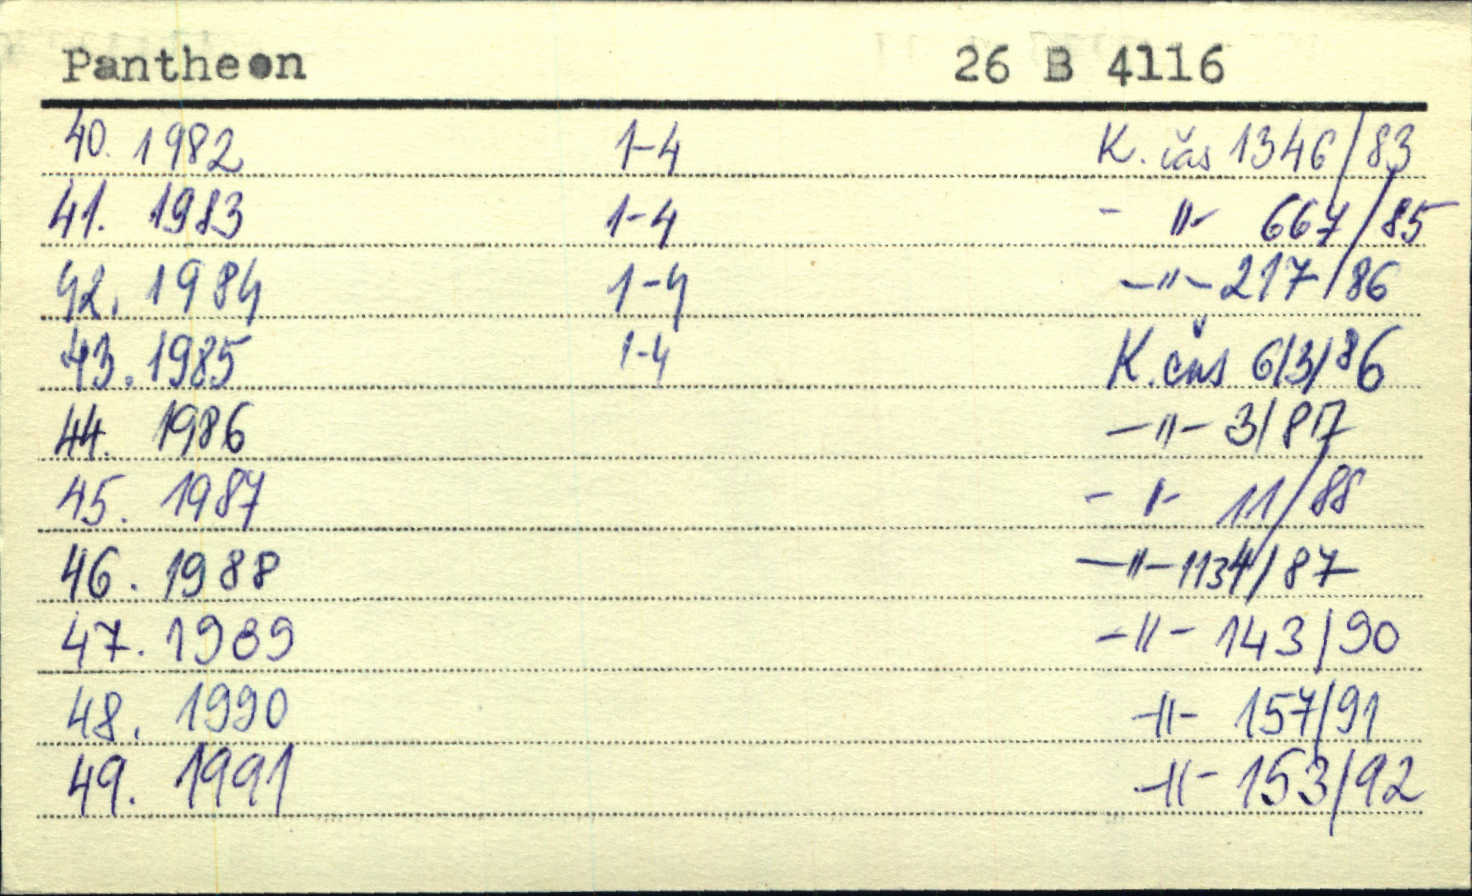 Pantheon 26 B 4116
40. 1982 1-4 K. čas 1346/83
41. 1983 1-4 - " - 667/85
42. 1984 1-4 - " - 217/86
43. 1985 1-4 K. čas 613/86
44. 1986 - " - 3/87
45. 1987 - " - 11/88
46. 1988 - " - 1134/87
47. 1989 - " - 143/90
48. 1990 - " - 157/91
49. 1991 - " - 153/92